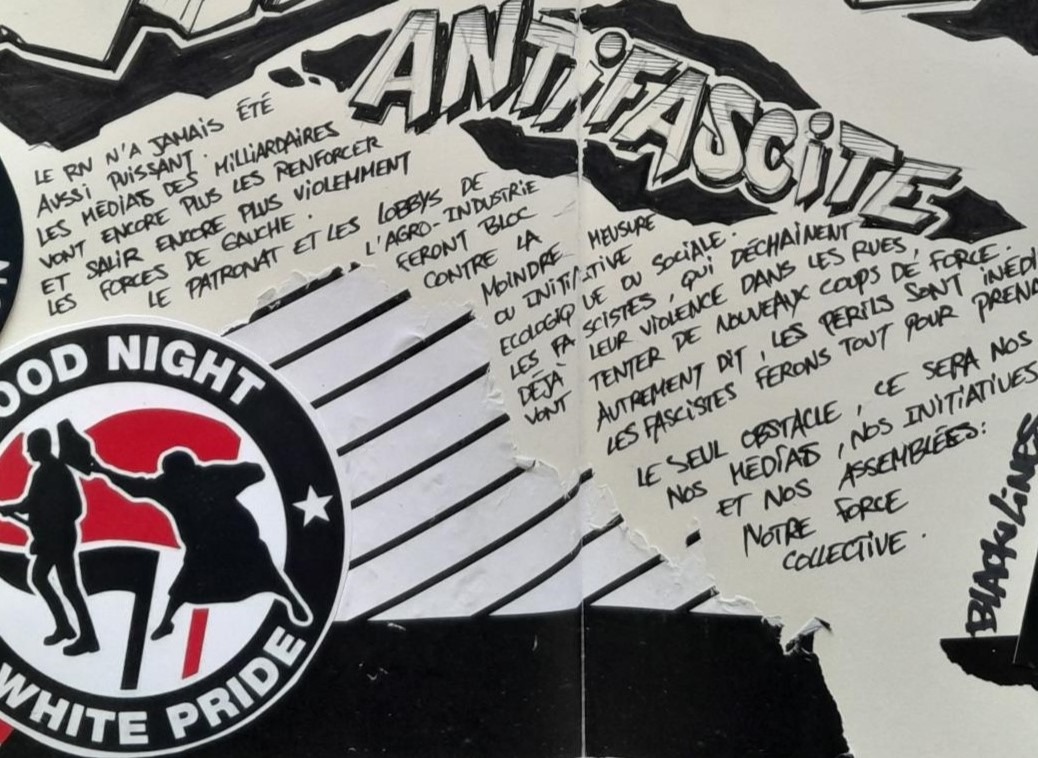 ANTIFASCITE
LE RN N'A JAMAIS ÉTÉ
AUSSI PUISSANT.
LES MÉDIAS DES MILLIARDAIRES
VONT ENCORE PLUS LES RENFORCER
ET SALIR ENCORE PLUS VIOLEMMENT
LES FORCES DE GAUCHE.
LE PATRONAT ET LES LOBBYS DE
L'AGRO-INDUSTRIE
FERONT BLOC
CONTRE LA
MOINDRE MEUSURE
OU INITIATIVE
ECOLOGIQUE OU SOCIALE.
LES FASCISTES, QUI DÉCHAINENT
DÉJÀ LEUR VIOLENCE DANS LES RUES,
VONT TENTER DE NOUVEAUX COUPS DE FORCE.
AUTREMENT DIT, LES PERILS SONT INÉDI
LES FASCISTES FERONS TOUT POUR
LE SEUL OBSTACLE, CE SERA NOS
NOS MÉDIAS, NOS INITIATIVES
ET NOS ASSEMBLÉES:
NOTRE FORCE
COLLECTIVE.
OOD NIGHT
WHITE PRIDE
BLACK LINES